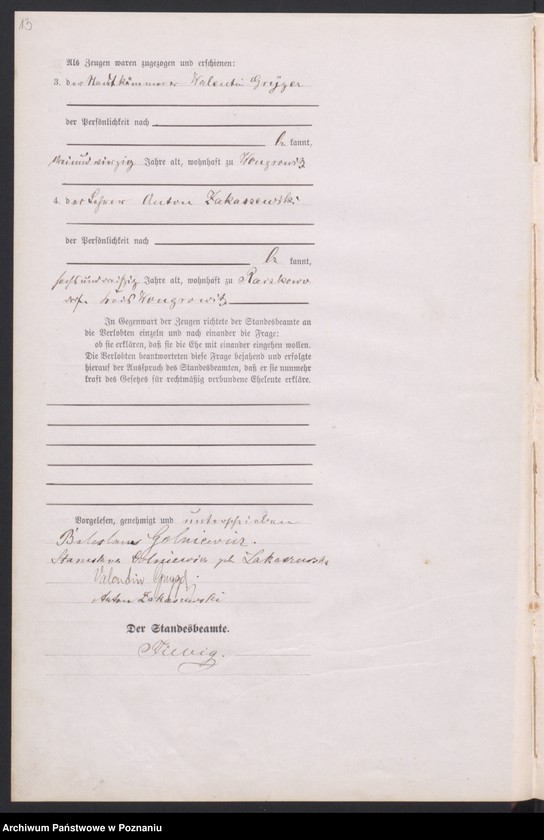 13
Als Zeugen waren zugezogen und erschienen:
3. der Valentin Gryger
der Persönlichkeit nach
be kannt,
dreiundvierzig Jahre alt, wohnhaft zu Wongrowitz
4. der Lehrer Anton Zakaszewski
der Persönlichkeit nach
be kannt,
sechsunddreißig Jahre alt, wohnhaft zu
Kreis Wongrowitz
In Gegenwart der Zeugen richtete der Standesbeamte an
die Verlobten einzeln und nach einander die Frage:
ob sie erklären, daß sie die Ehe mit einander eingehen wollen.
Die Verlobten beantworteten diese Frage bejahend und erfolgte
hierauf der Ausspruch des Standesbeamten, daß er sie nunmehr
kraft des Gesetzes für rechtmäßig verbundene Eheleute erkläre.
Vorgelesen, genehmigt und unterschrieben
Boleslaus Golniewicz.
Stanislawa Golniewicz geb.
Valentin
Anton Zakaszewski
Der Standesbeamte.
Archiwum Państwowe w Poznaniu